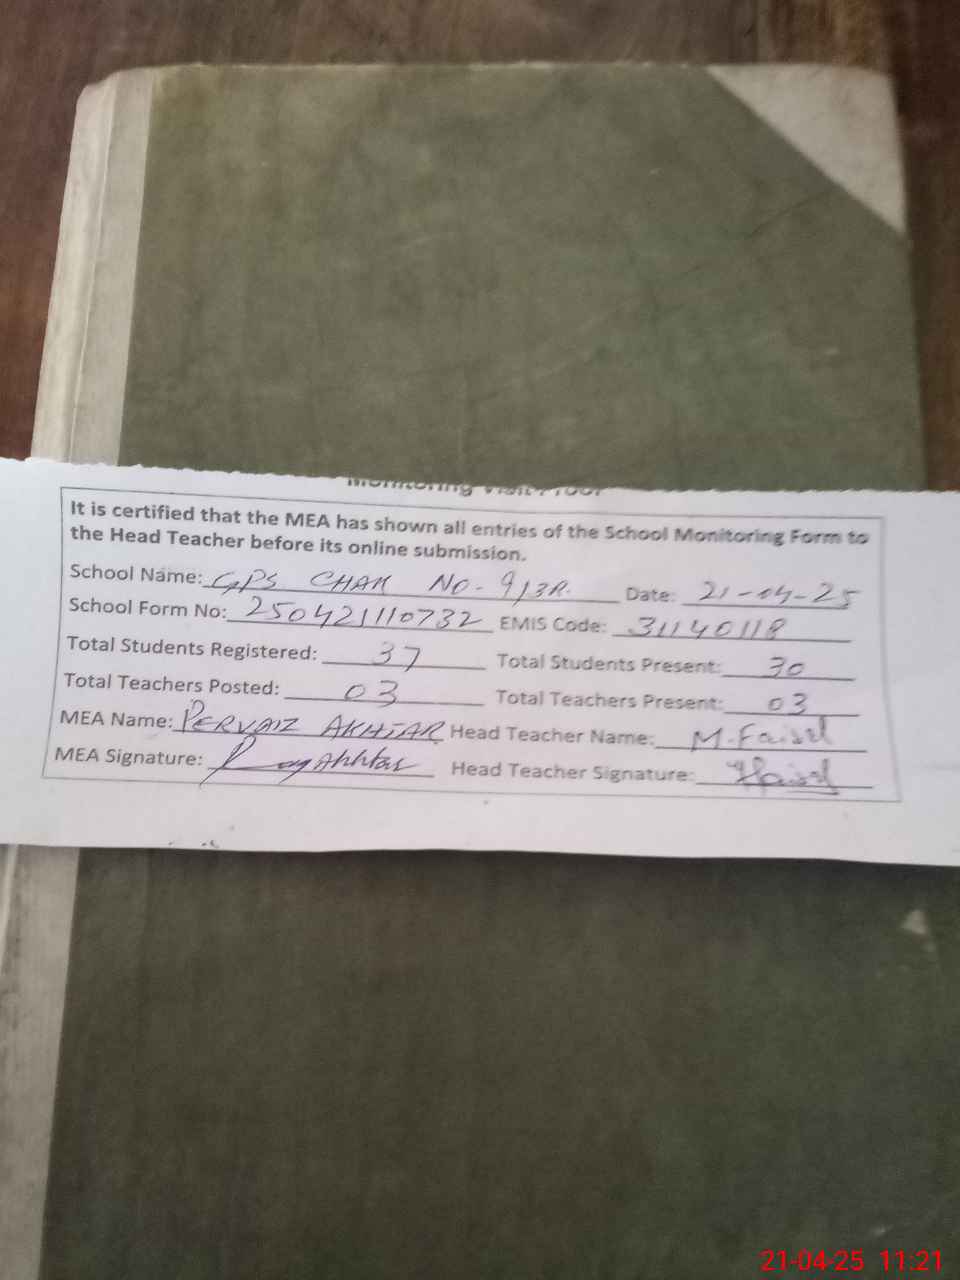 Monitoring Visit Proof
It is certified that the MEA has shown all entries of the School Monitoring Form to
the Head Teacher before its online submission.
School Name: GPS CHAK NO-9/3R. Date: 21-04-25
School Form No: 250421110732 EMIS Code: 31140118
Total Students Registered: 37 Total Students Present: 30
Total Teachers Posted: 03 Total Teachers Present: 03
MEA Name: PERVAIZ AKHTAR Head Teacher Name: M.Faisal
MEA Signature: Akhtar Head Teacher Signature: Faisal
21-04-25 11:21